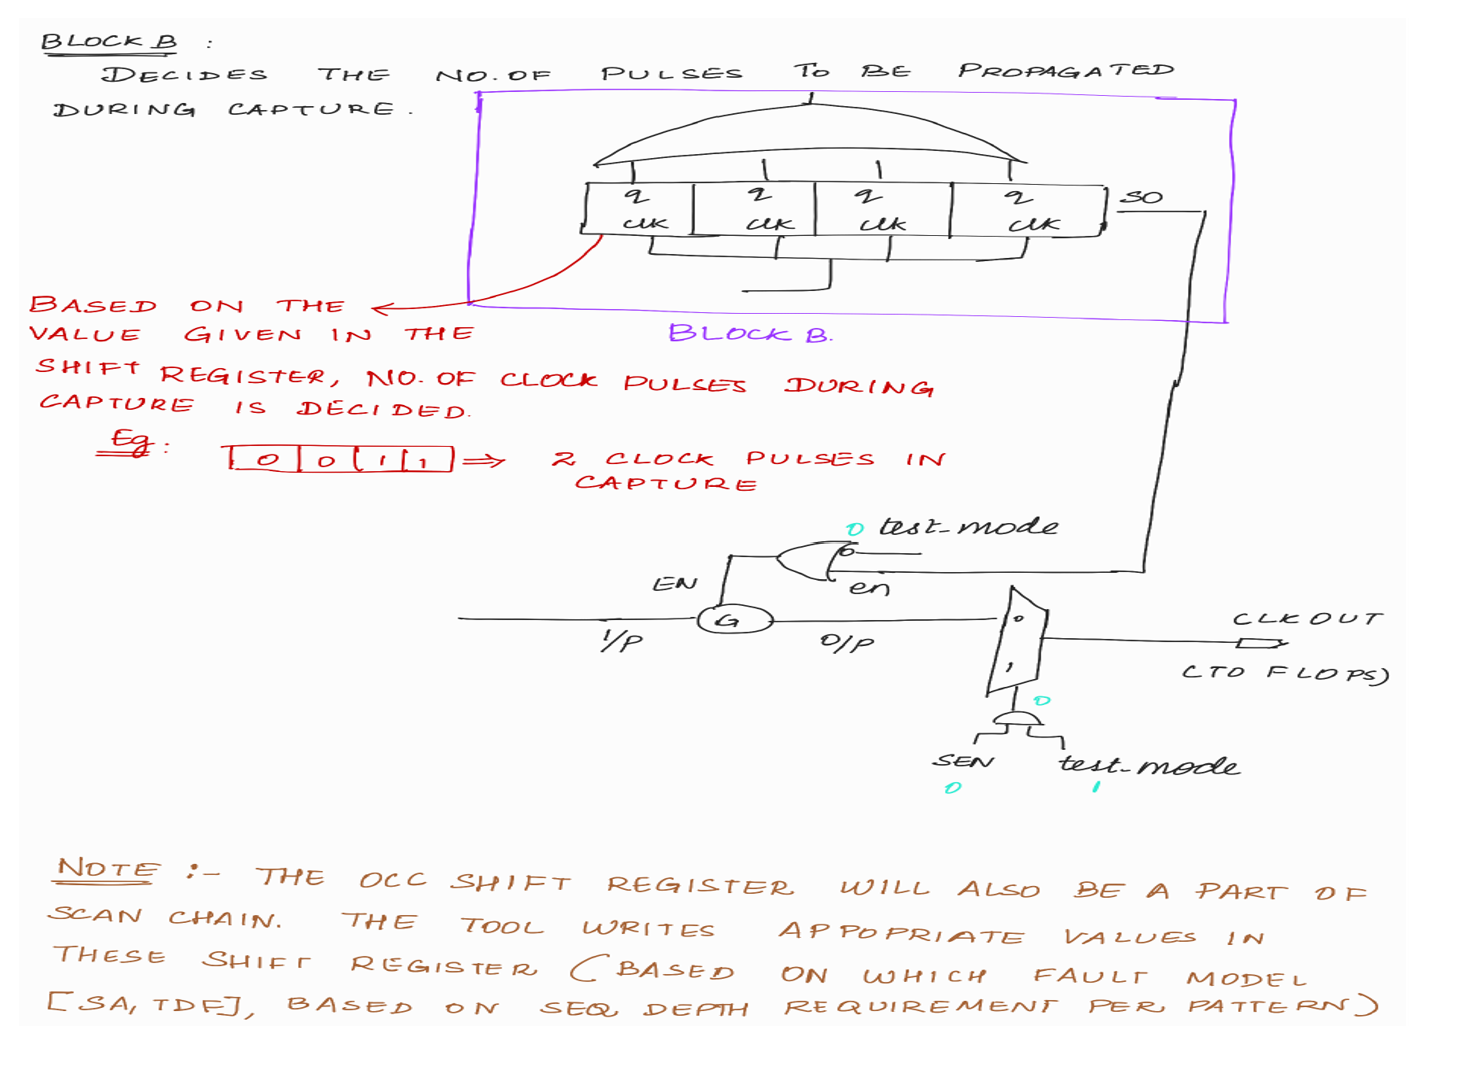 BLOCK B :
DECIDES THE NO. OF PULSES TO BE PROPAGATED
DURING CAPTURE.
q q q q
clk clk clk clk
SO
BLOCK B.
BASED ON THE
VALUE GIVEN IN THE
SHIFT REGISTER, NO. OF CLOCK PULSES DURING
CAPTURE IS DECIDED.
Eg: 0 0 1 1 ⇒ 2 CLOCK PULSES IN
CAPTURE
0 test-mode
EN
en
G
I/P
O/P
0
1
CLK OUT
(TO FLOPS)
0
SEN test-mode
0 1
NOTE :- THE OCC SHIFT REGISTER WILL ALSO BE A PART OF
SCAN CHAIN. THE TOOL WRITES APPOPRIATE VALUES IN
THESE SHIFT REGISTER (BASED ON WHICH FAULT MODEL
[SA, TDF], BASED ON SEQ DEPTH REQUIREMENT PER PATTERN)